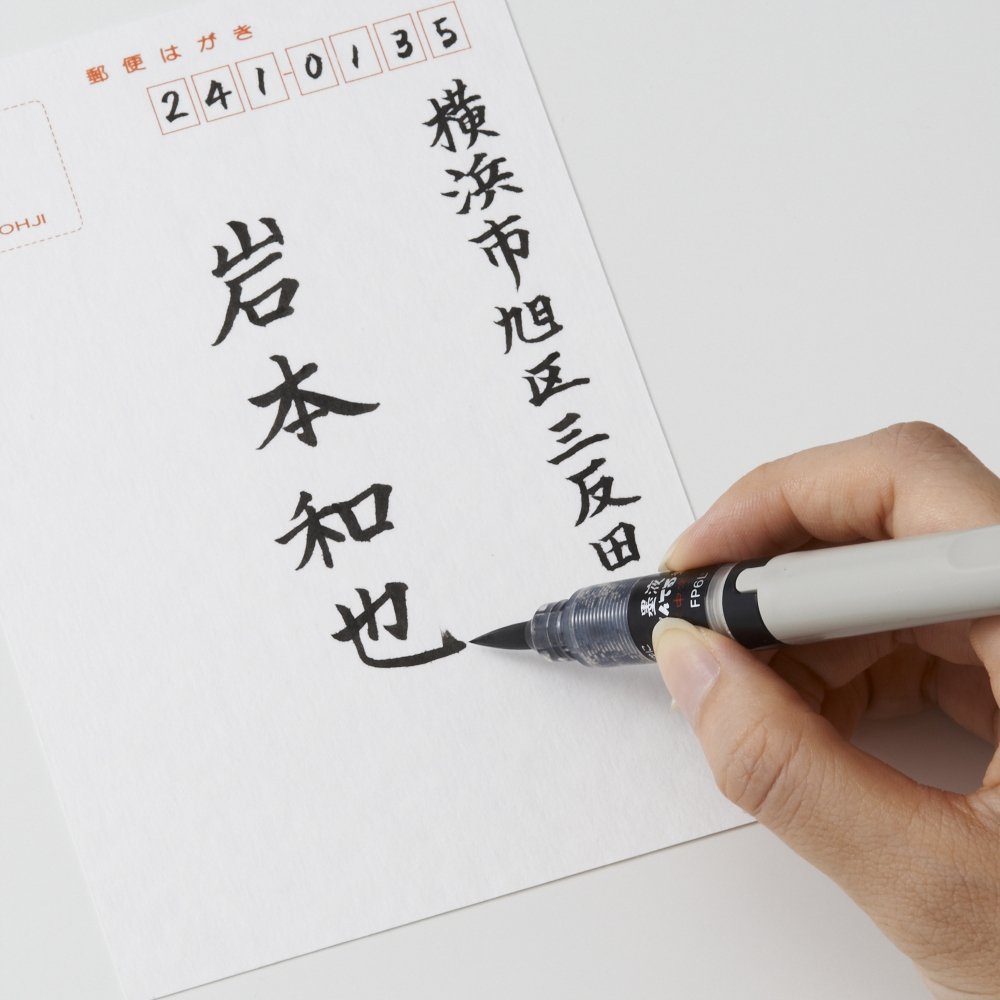 郵便はがき
241-0135
横浜市旭区三反田
岩本和也
OHJI
墨液
FP6L